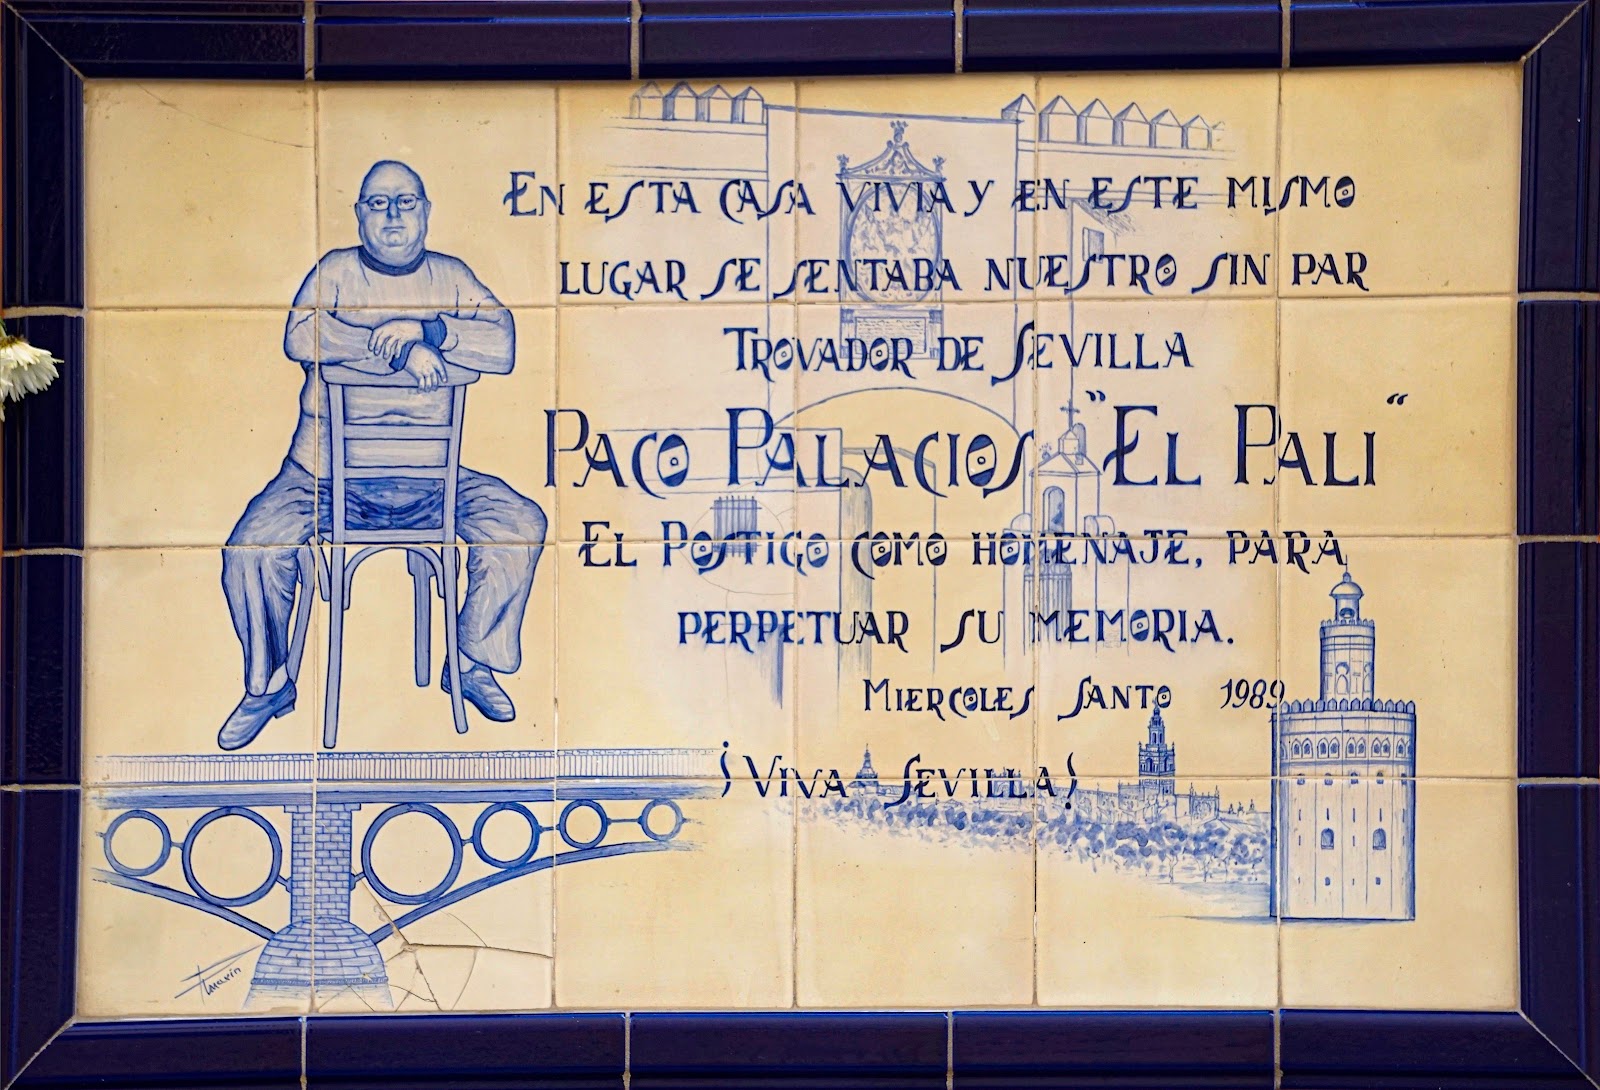 En esta casa vivia y en este mismo
lugar se sentaba nuestro sin par
Trovador de Sevilla
Paco Palacios "El Pali"
El Postigo como homenaje, para
perpetuar su memoria.
Miercoles Santo 1989
¡Viva Sevilla!
Marín